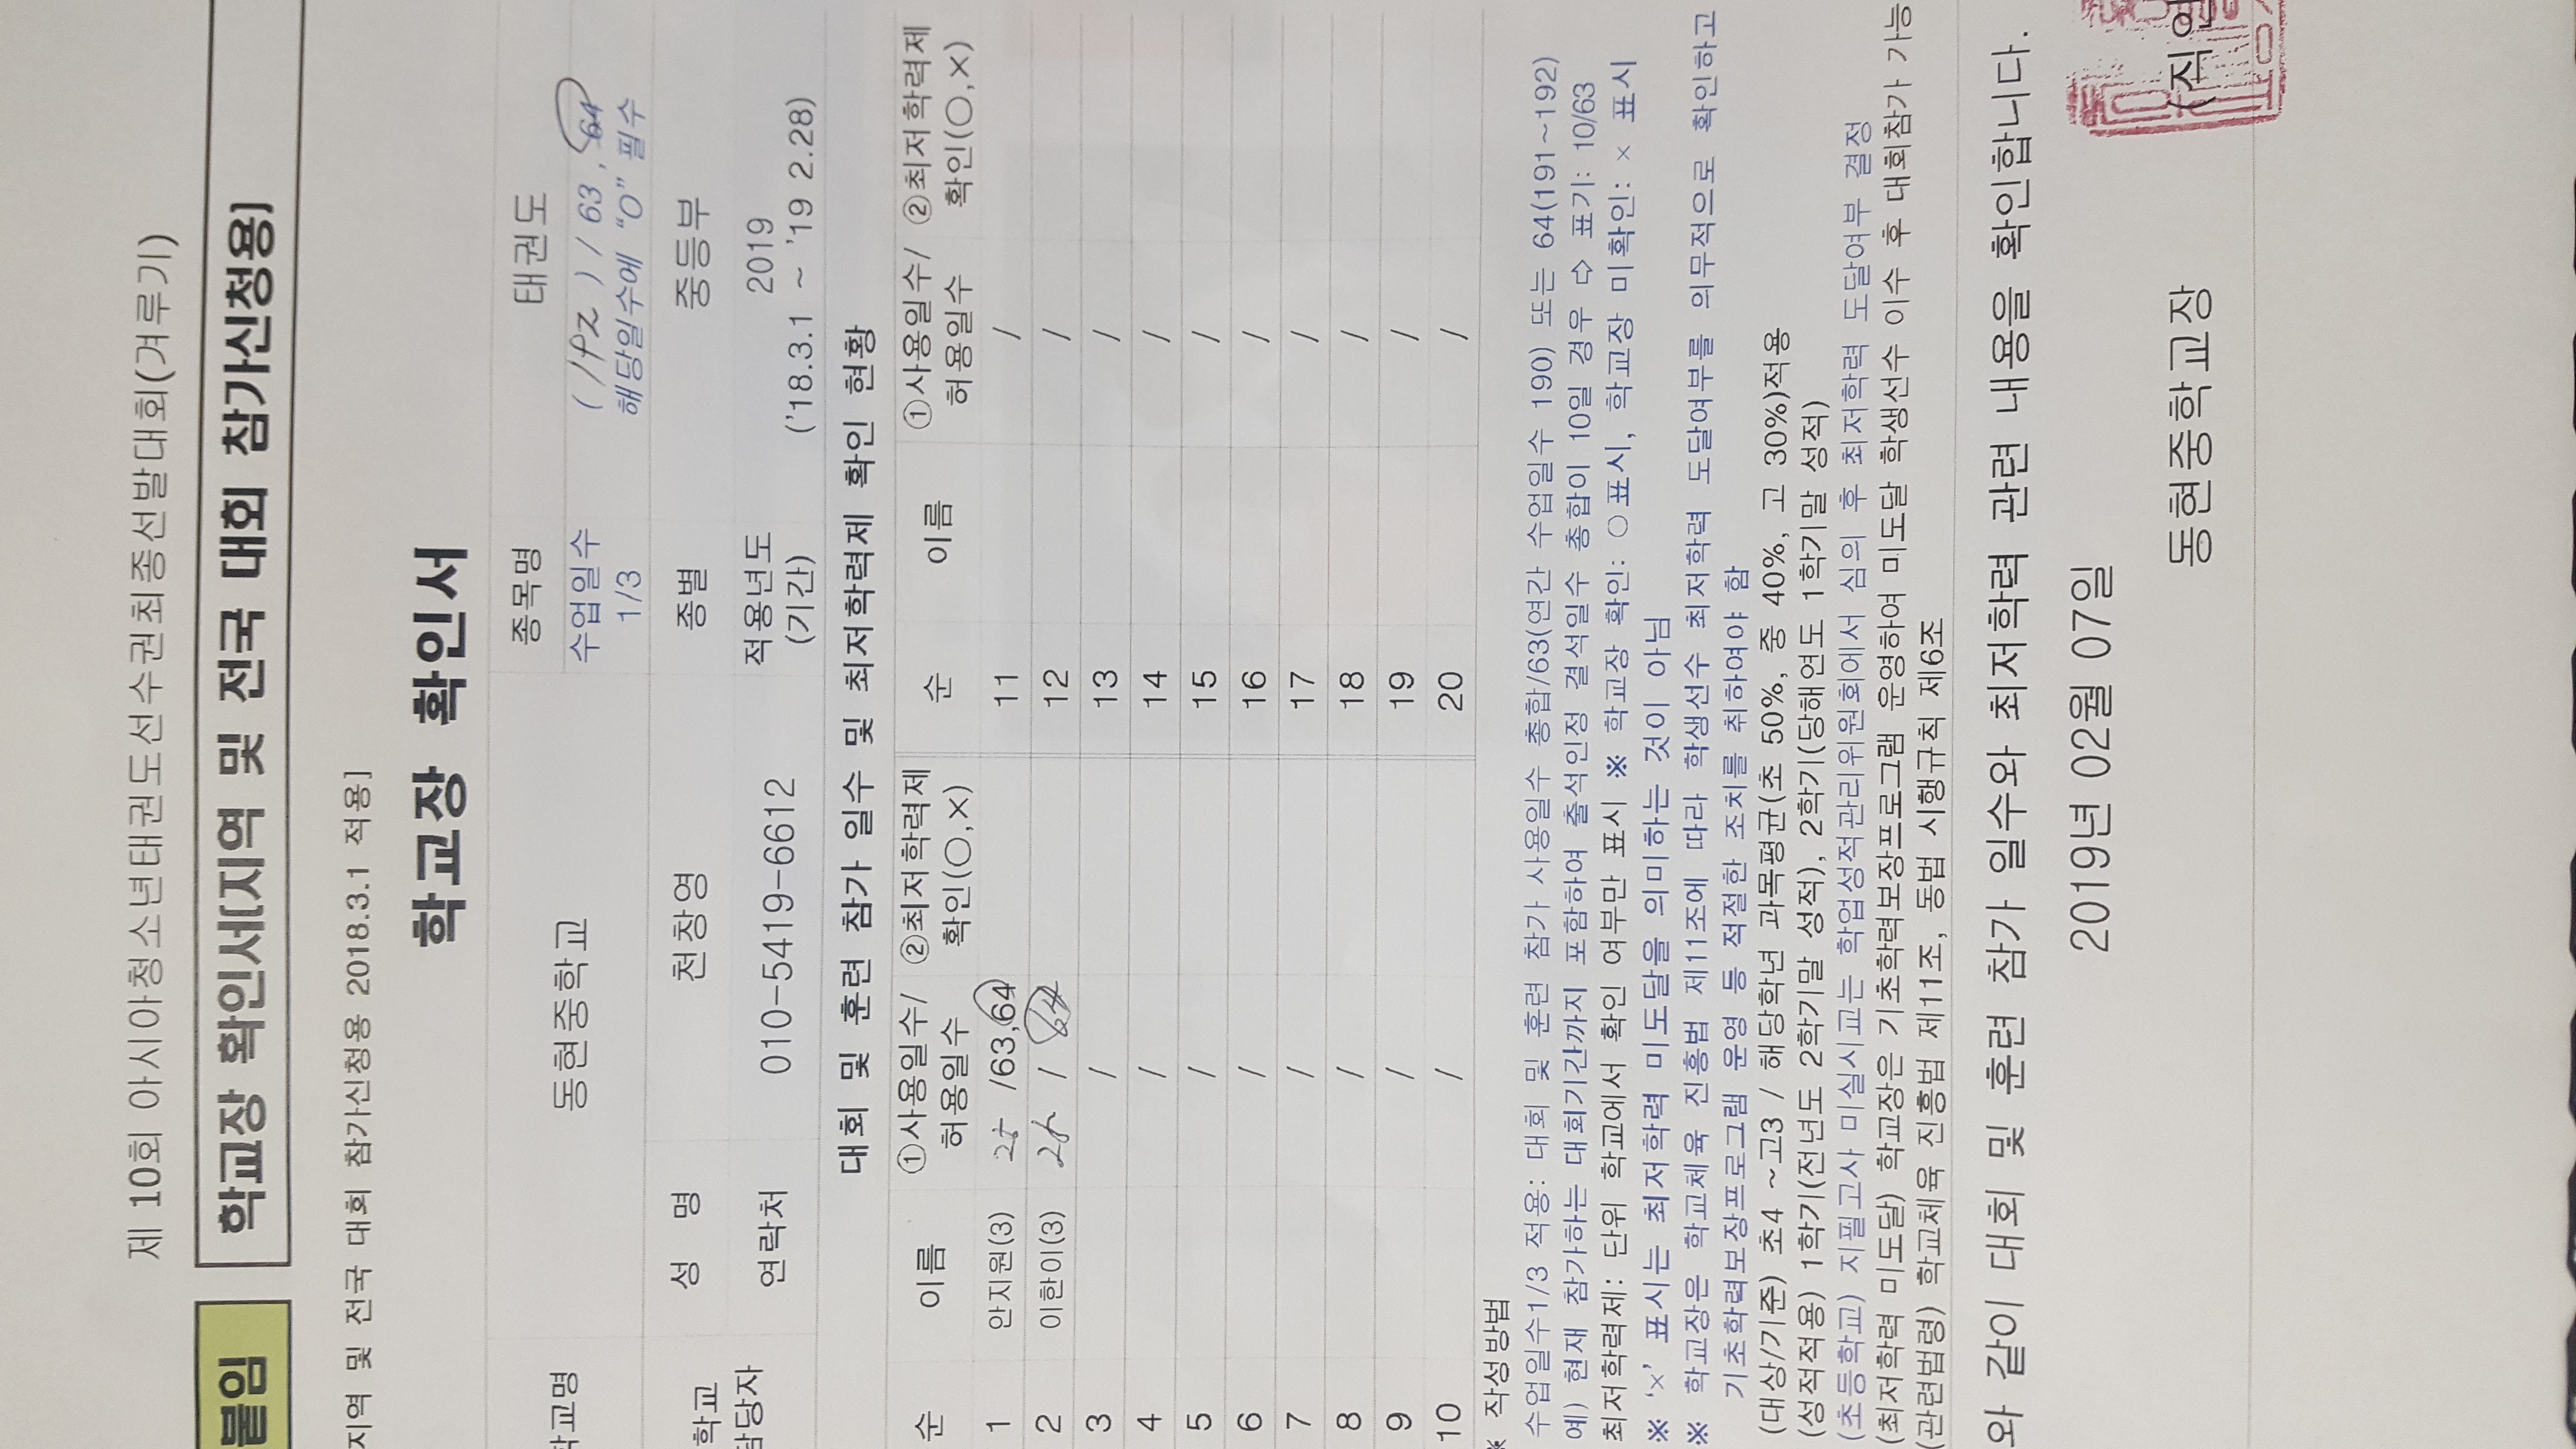 제 10회 아시아청소년태권도선수권최종선발대회(겨루기)
붙임 학교장 확인서[지역 및 전국 대회 참가신청용]
지역 및 전국 대회 참가신청용 2018.3.1 적용]
학교장 확인서
학교명 동현중학교 종목명 태권도
수업일수 1/3 ( 192 ) / 63 , 64
해당일수에 "O" 필수
학교 담당자 성 명 천창영 종별 중등부
연락처 010-5419-6612 적용년도 (기간) 2019
('18.3.1 ~ '19 2.28)
대회 및 훈련 참가 일수 및 최저학력제 확인 현황
순 이름 ①사용일수/ 허용일수 ②최저학력제 확인(○,×) 순 이름 ①사용일수/ 허용일수 ②최저학력제 확인(○,×)
1 안지원(3) /63,64 11 /
2 이한이(3) / 64 12 /
3 / 13 /
4 / 14 /
5 / 15 /
6 / 16 /
7 / 17 /
8 / 18 /
9 / 19 /
10 / 20 /
※ 작성방법
수업일수1/3 적용: 대회 및 훈련 참가 사용일수 총합/63(연간 수업일수 190) 또는 64(191~192)
예) 현재 참가하는 대회기간까지 포함하여 출석인정 결석일수 총합이 10일 경우 ⇨ 표기: 10/63
최저학력제: 단위 학교에서 확인 여부만 표시 ※ 학교장 확인: ○표시, 학교장 미확인: × 표시
※ '×' 표시는 최저학력 미도달을 의미하는 것이 아님
※ 학교장은 학교체육 진흥법 제11조에 따라 학생선수 최저학력 도달여부를 의무적으로 확인하고
기초학력보장프로그램 운영 등 적절한 조치를 취하여야 함
(대상/기준) 초4 ~고3 / 해당학년 과목평균(초 50%, 중 40%, 고 30%)적용
(성적적용) 1학기(전년도 2학기말 성적), 2학기(당해연도 1학기말 성적)
(초등학교) 지필고사 미실시교는 학업성적관리위원회에서 심의 후 최저학력 도달여부 결정
(최저학력 미도달) 학교장은 기초학력보장프로그램 운영하여 미도달 학생선수 이수 후 대회참가 가능
(관련법령) 학교체육 진흥법 제11조, 동법 시행규칙 제6조
와 같이 대회 및 훈련 참가 일수와 최저학력 관련 내용을 확인합니다.
2019년 02월 07일
동현중학교장 (직인